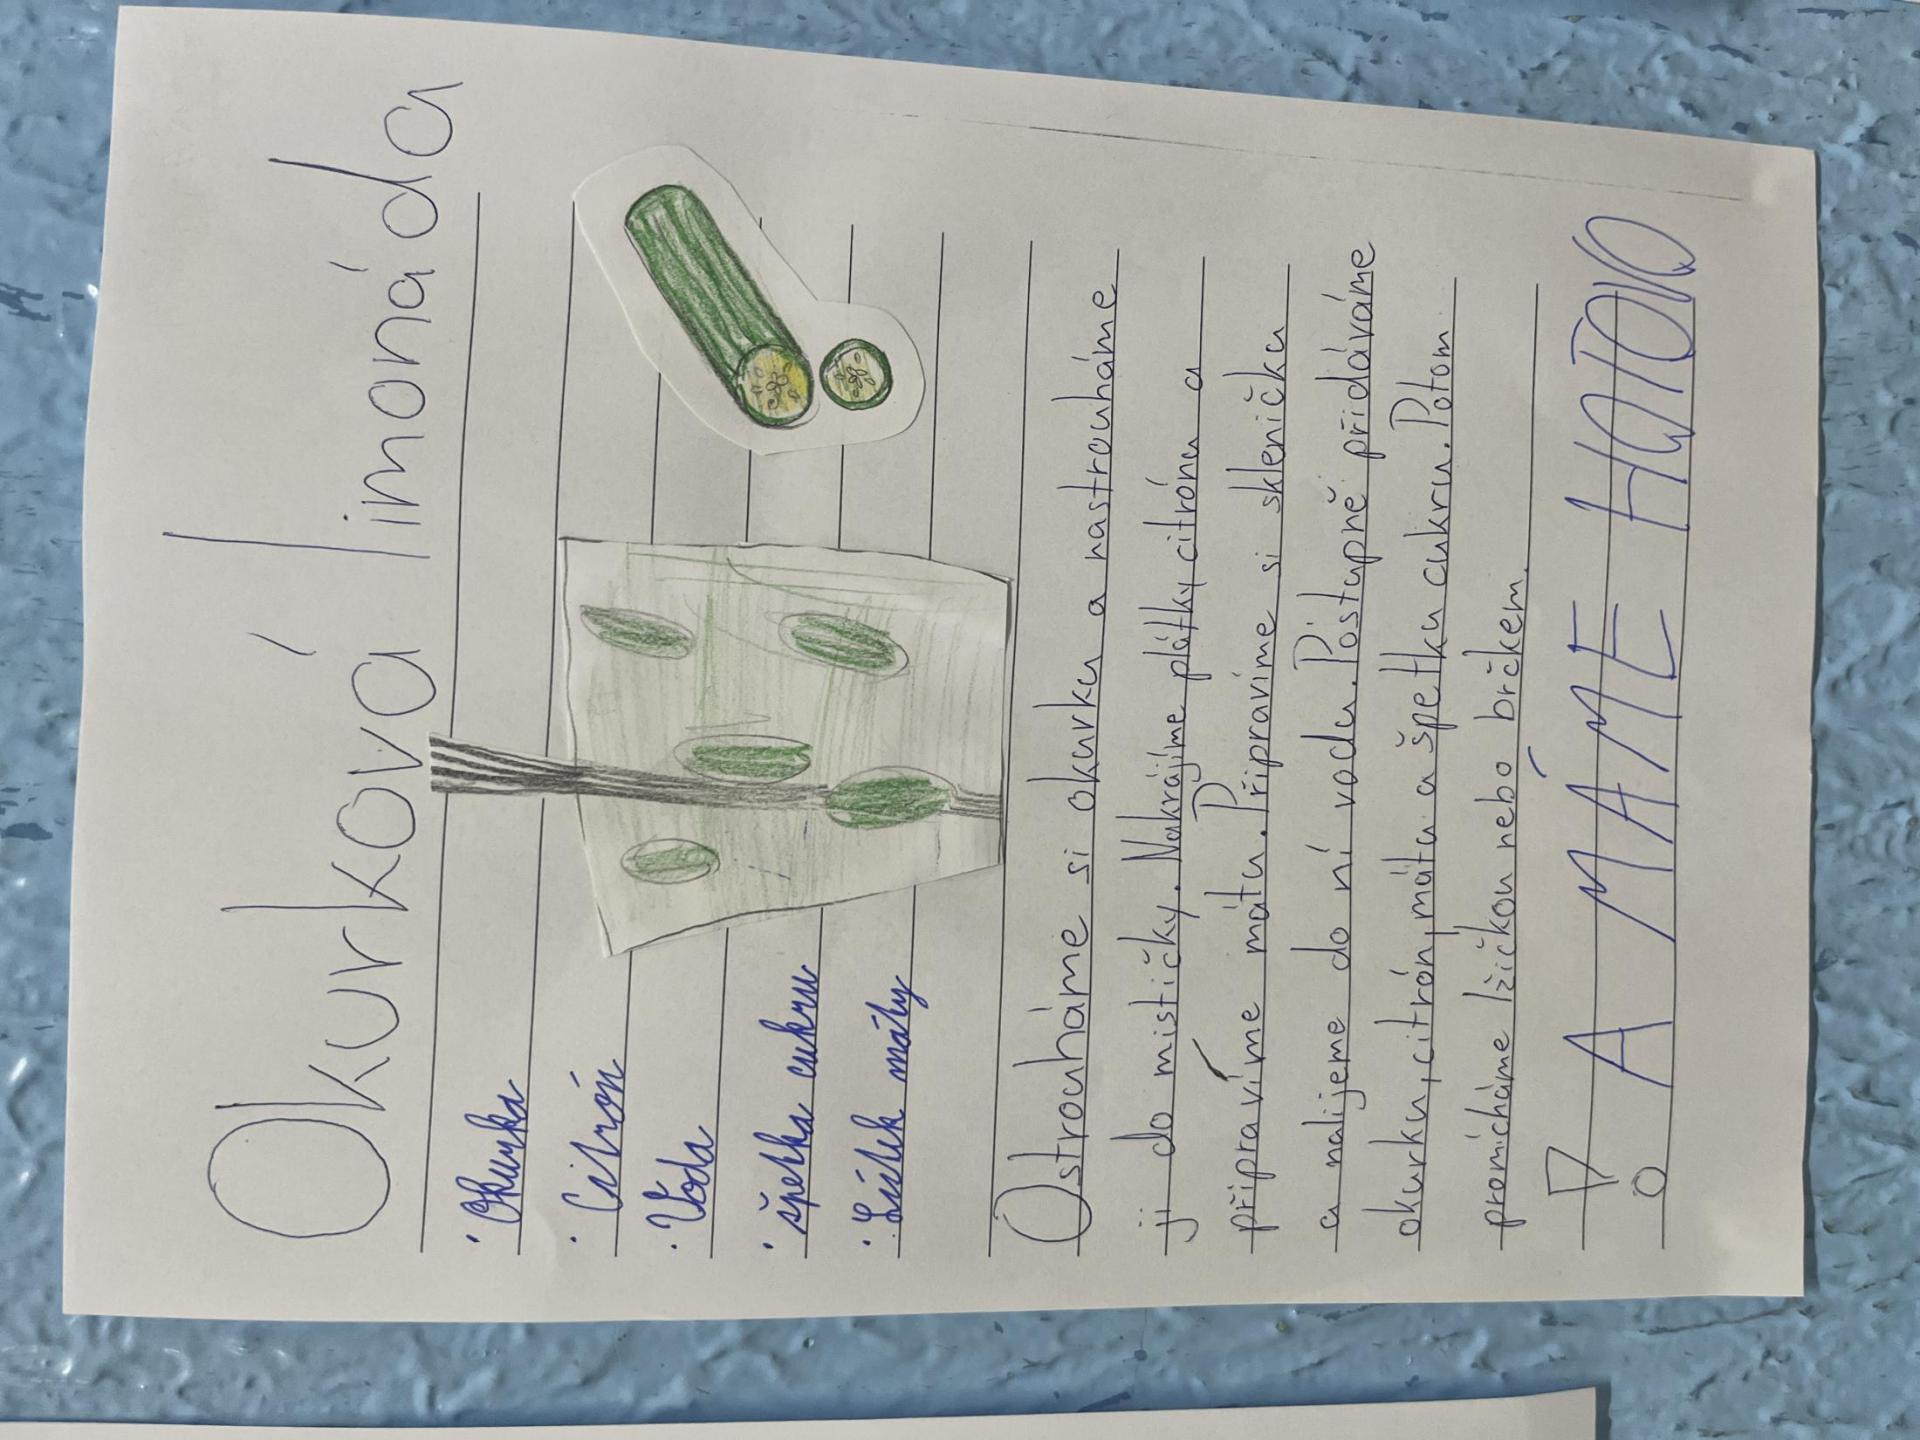 Okurková limonáda
· Okurka
· Citrón
· Voda
· špetka cukru
· Lístek máty
Ostrouháme si okurku a nastrouháme
ji do mističky. Nakrájíme plátky citrónu a
připravíme mátu. Připravíme si skleničku
a nalijeme do ní vodu. Postupně přidáváme
okurku, citrón, mátu a špetku cukru. Potom
promícháme lžičkou nebo brčkem.
! A MÁME HOTOVO